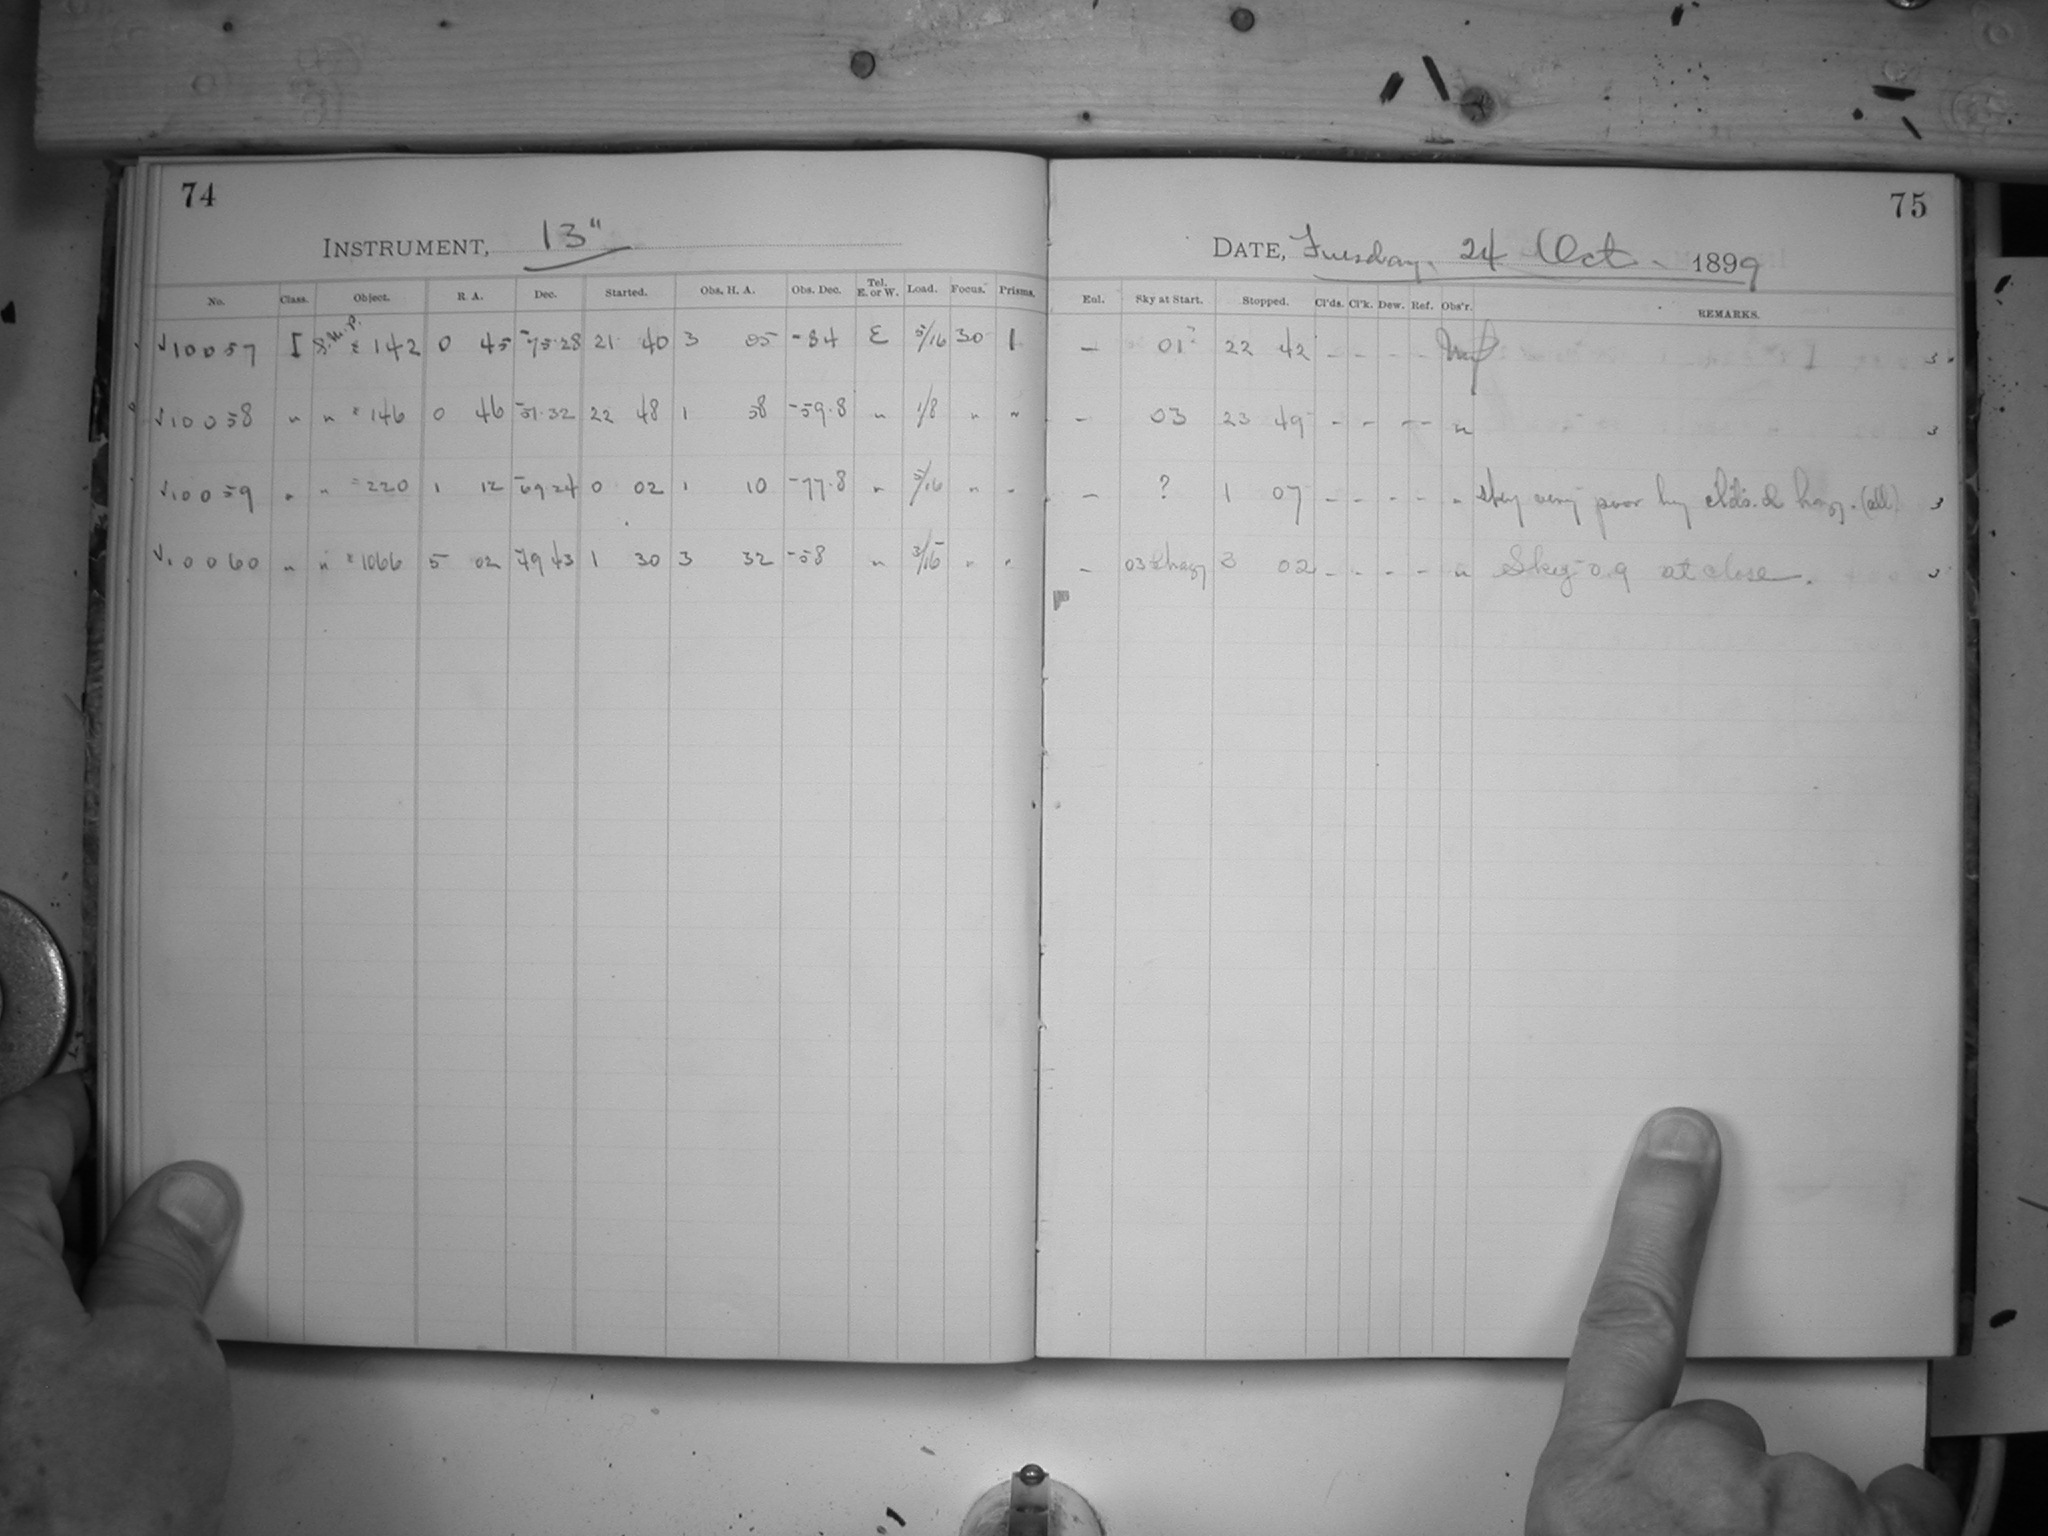 74
INSTRUMENT, 13"
No. Class. Object. R A. Dec. Started. Obs. H. A. Obs. Dec. Tel. E. or W. Load. Focus. Prisms.
√10057 I S.M.P. " 142 0 45 -75.28 21 40 3 05 -84 E 5/16 30 1
√10058 " " " 146 0 46 32 22 48 1 58 -59.8 " 1/8 " "
√10059 " " " 220 1 12 -69.24 0 02 1 10 -77.8 " 5/16 " "
√10060 " " " 1066 5 02 -49 43 1 30 3 32 -58 " 3/16 " "
75
DATE, Tuesday. 24 Oct. 1899
Enl. Sky at Start. Stopped. Cl'ds. Cl'k. Dew. Ref. Obs'r. REMARKS.
– 01? 22 42 – – – – 3
– 03 23 49 – – – – " 3
– ? 1 07 – – – – " sky very poor by cl'ds. & hazy. (all) 3
– 03 & hazy 3 02 – – – – " Sky 0.9 at close. 3